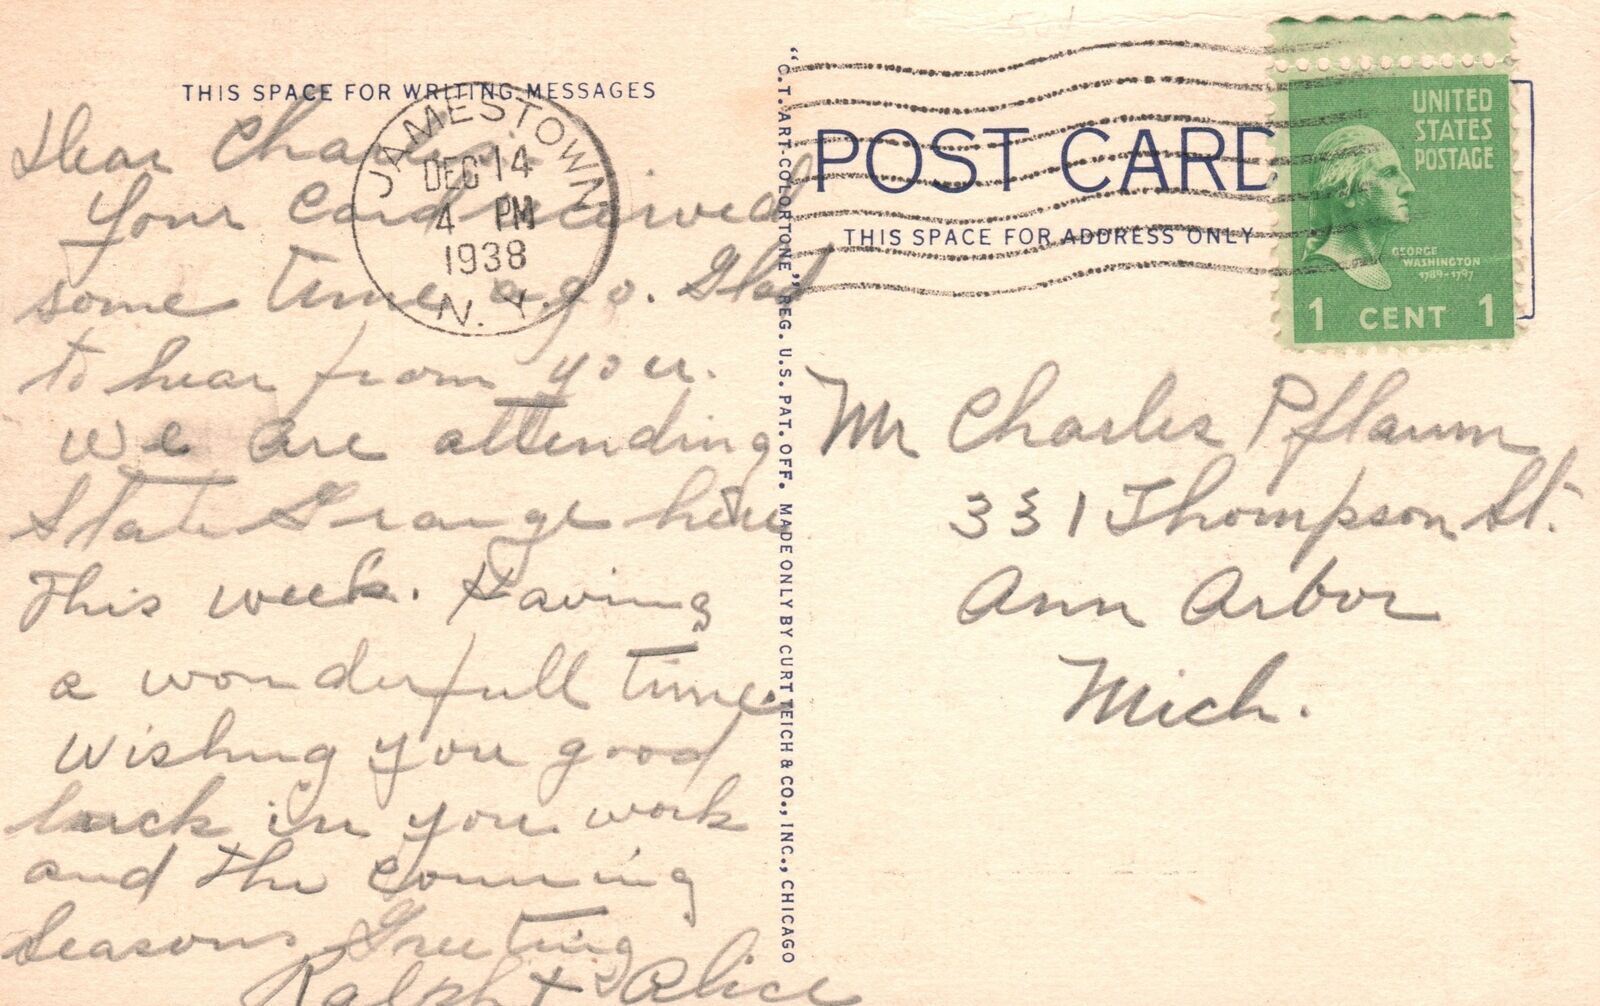 THIS SPACE FOR WRITING MESSAGES
Dear Charles.
Your Card received
some time ago. Glad
to hear from you.
We are attending
State Grange here
This week. Having
a wonderfull time.
Wishing you good
luck in your work
and the comming
Seasons Greeting
Ralph & Alice
JAMESTOWN
DEC 14
4 PM
1938
N.Y.
"C.T. ART-COLORTONE" REG. U.S. PAT. OFF. MADE ONLY BY CURT TEICH & CO., INC., CHICAGO
POST CARD
THIS SPACE FOR ADDRESS ONLY
UNITED
STATES
POSTAGE
GEORGE
WASHINGTON
1789-1797
1 CENT 1
Mr Charles Pflaum
331 Thompson St.
Ann Arbor
Mich.